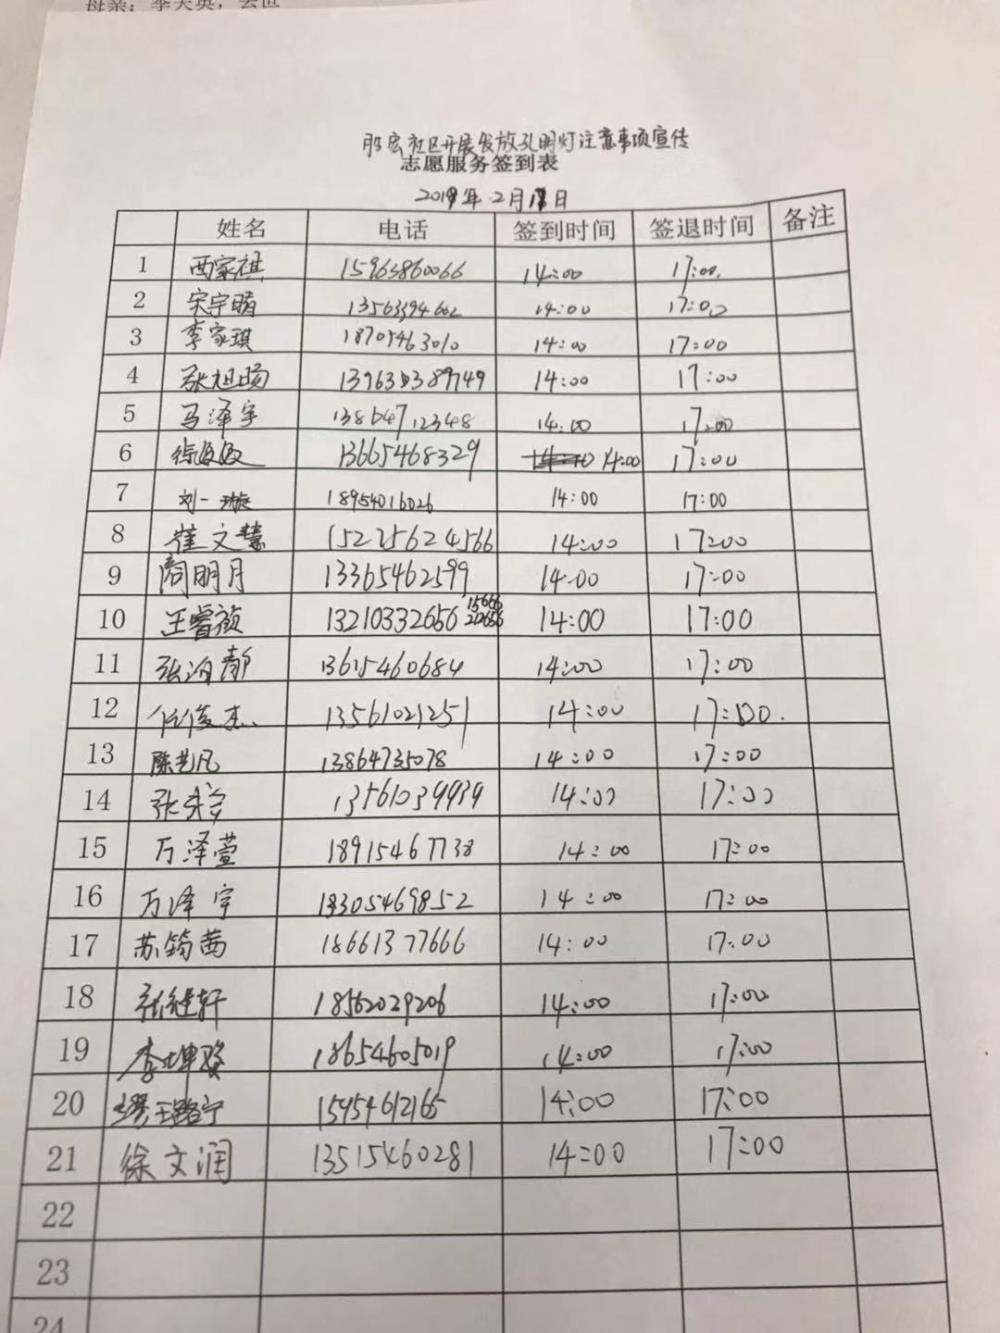 母亲：李天英，去世
胜宏社区开展发放孔明灯注意事项宣传
志愿服务签到表
2019年2月18日
姓名 电话 签到时间 签退时间 备注
1 西家祺 15963860066 14:00 17:00
2 宋宇晴 14:00 17:00
3 李家琪 18705463010 14:00 17:00
4 张旭旸 14:00 17:00
5 马泽宇 13864712348 14:00 17:00
6 13665468329 14:00 17:00
7 刘一璇 18954016026 14:00 17:00
8 崔文慧 15225624566 14:00 17:00
9 周明月 13365462599 14:00 17:00
10 王睿颜 13210332656 14:00 17:00
11 13615460684 14:00 17:00
12 任俊杰 13561021251 14:00 17:00
13 陈艺凡 13864735078 14:00 17:00
14 13561039939 14:00 17:00
15 万泽萱 18915467738 14:00 17:00
16 万泽宇 18305469852 14:00 17:00
17 苏筠茜 18661377666 14:00 17:00
18 张继轩 18562029206 14:00 17:00
19 李坤 18654605019 14:00 17:00
20 15954612165 14:00 17:00
21 徐文润 13515460281 14:00 17:00
22
23
24